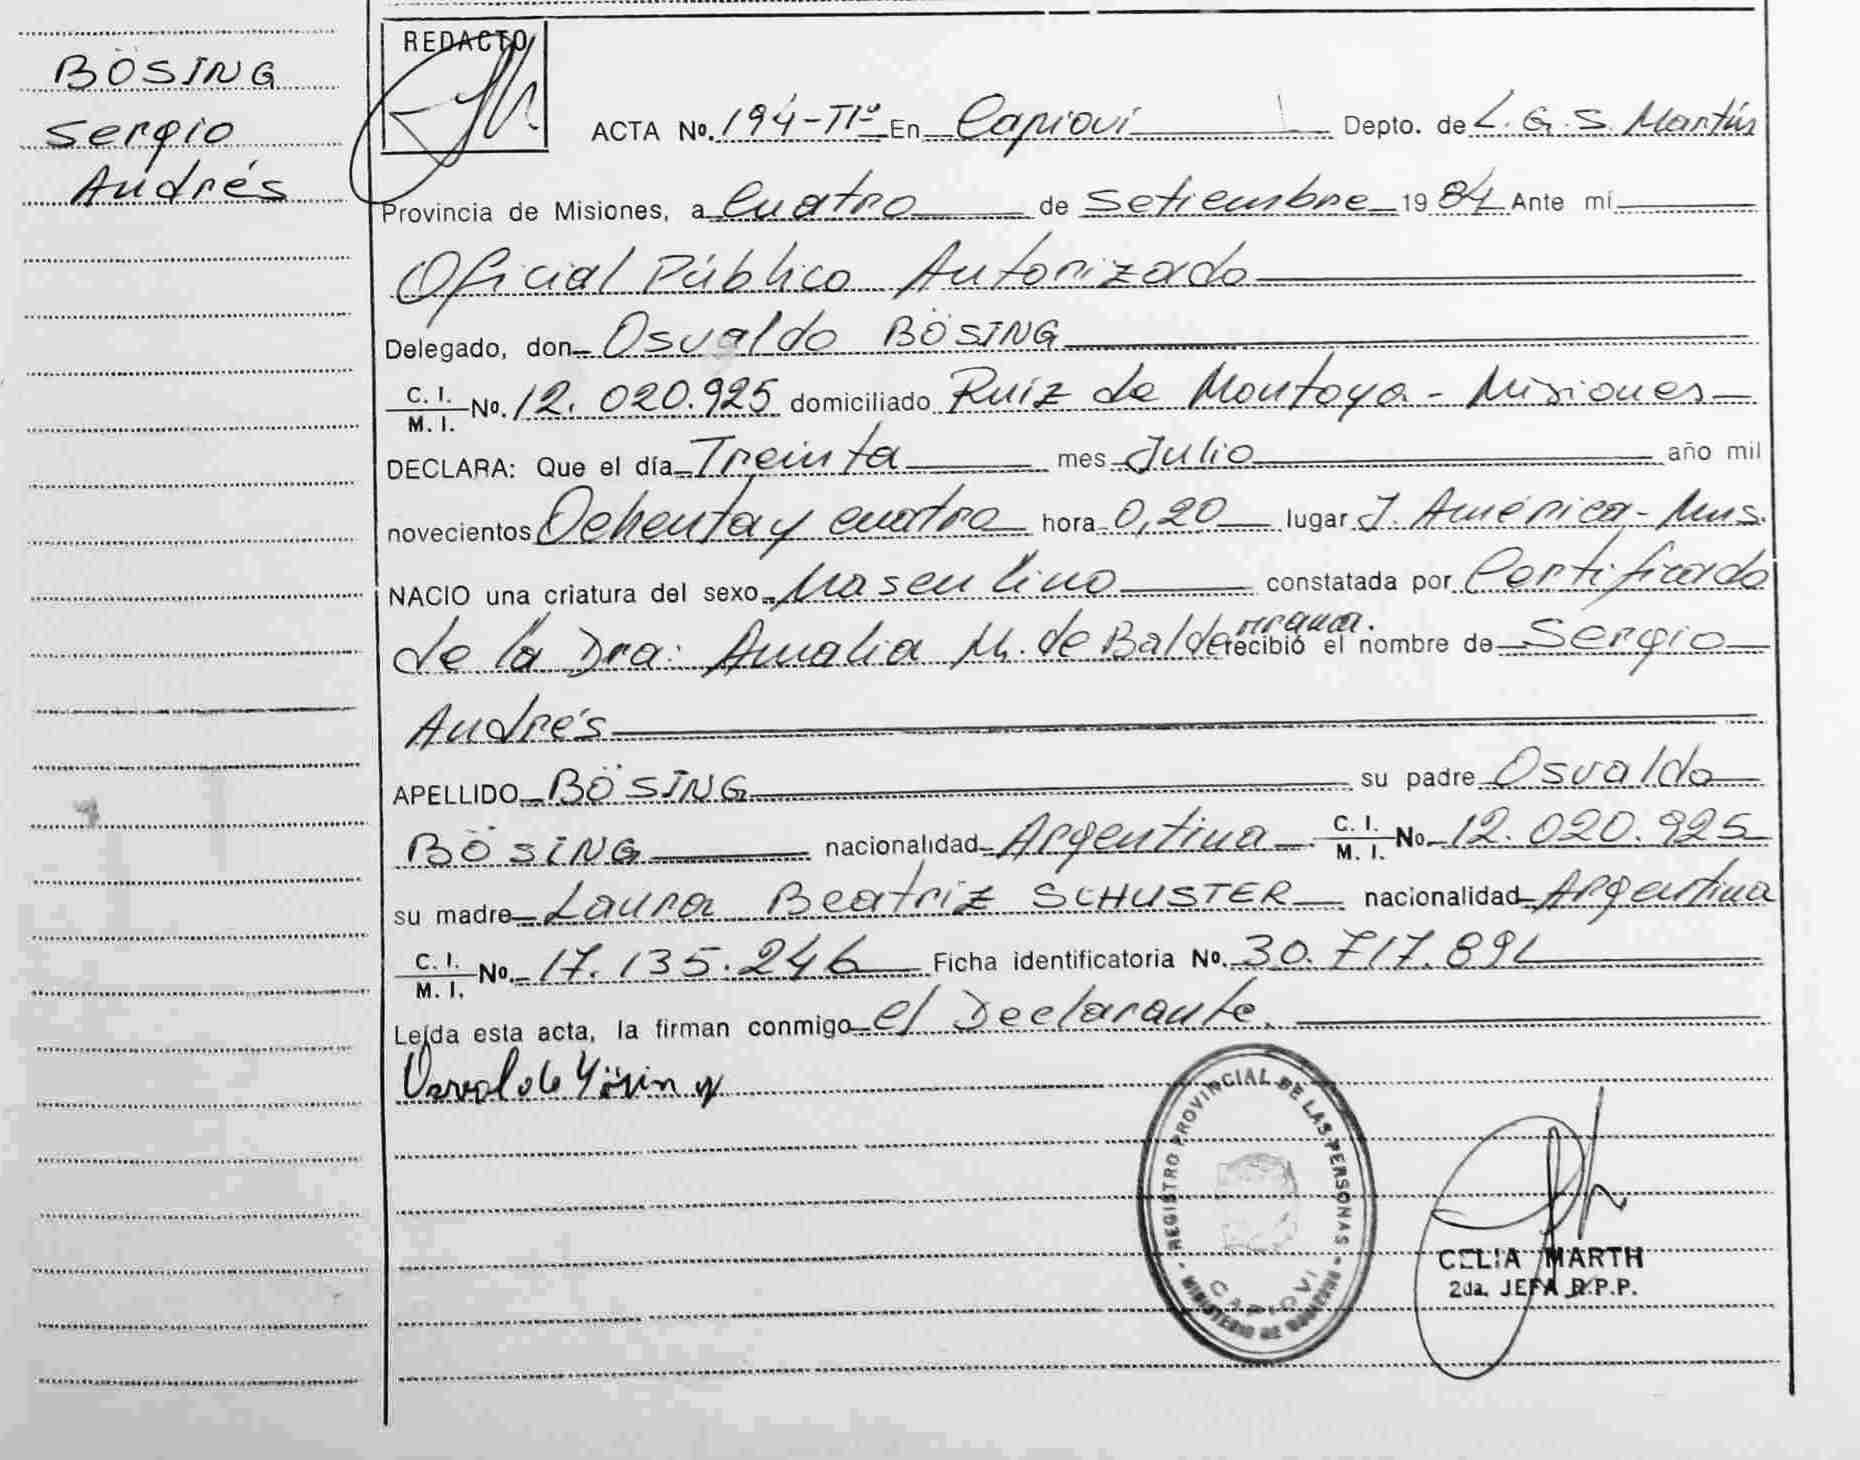 BÖSING
Sergio
Andrés
REDACTO
ACTA Nº. 194-Tº En Capioví Depto. de L. G. S. Martín
Provincia de Misiones, a Cuatro de Setiembre 1984 Ante mí
Oficial Público Autorizado
Delegado, don Osvaldo BÖSING
C. I. / M. I. Nº. 12.020.925 domiciliado Ruiz de Montoya - Misiones
DECLARA: Que el día Treinta mes Julio año mil
novecientos Ochenta y cuatro hora 0,20 lugar J. América - Mns.
NACIO una criatura del sexo Masculino constatada por Certificado
de la Dra: Amalia M. de Balderrama. recibió el nombre de Sergio
Andrés
APELLIDO BÖSING su padre Osvaldo
BÖSING nacionalidad Argentina C. I. / M. I. Nº 12.020.925
su madre Laura Beatriz SCHUSTER nacionalidad Argentina
C. I. / M. I. Nº 17.135.246 Ficha identificatoria Nº. 30.717.891
Leída esta acta, la firman conmigo el Declarante.
Osvaldo Bösing
REGISTRO PROVINCIAL DE LAS PERSONAS
CAPIOVI
MINISTERIO DE GOBIERNO
CELIA MARTH
2da. JEFA R.P.P.